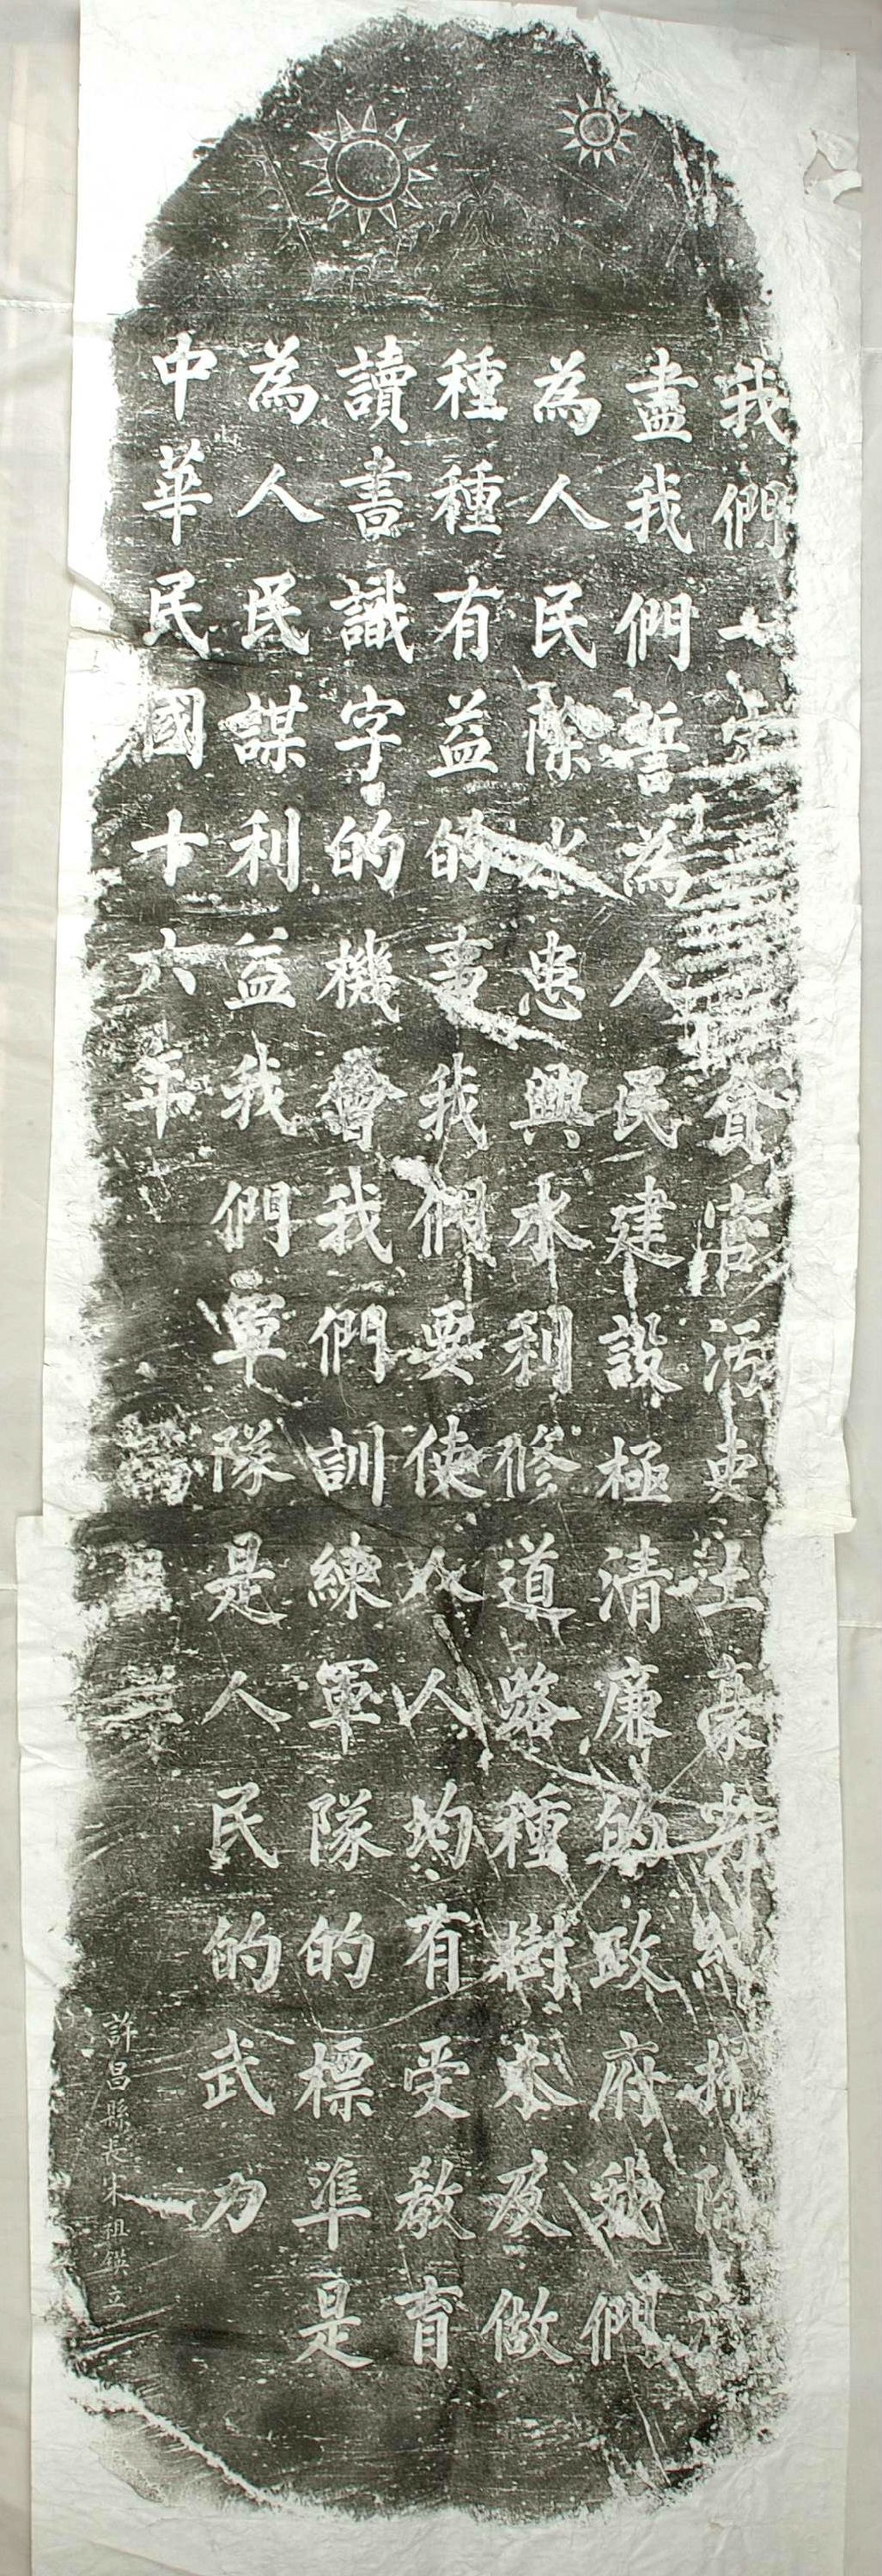 我們一定貪官污吏土豪劣紳掃除淨
盡我們誓為人民建設極清廉的政府我們
為人民除水患興水利修道路種樹木及做
種種有益的事我們要使人人均有受教育
讀書識字的機會我們訓練軍隊的標準是
為人民謀利益我們軍隊是人民的武力
中華民國十六年
許昌縣長宋祖鍈立